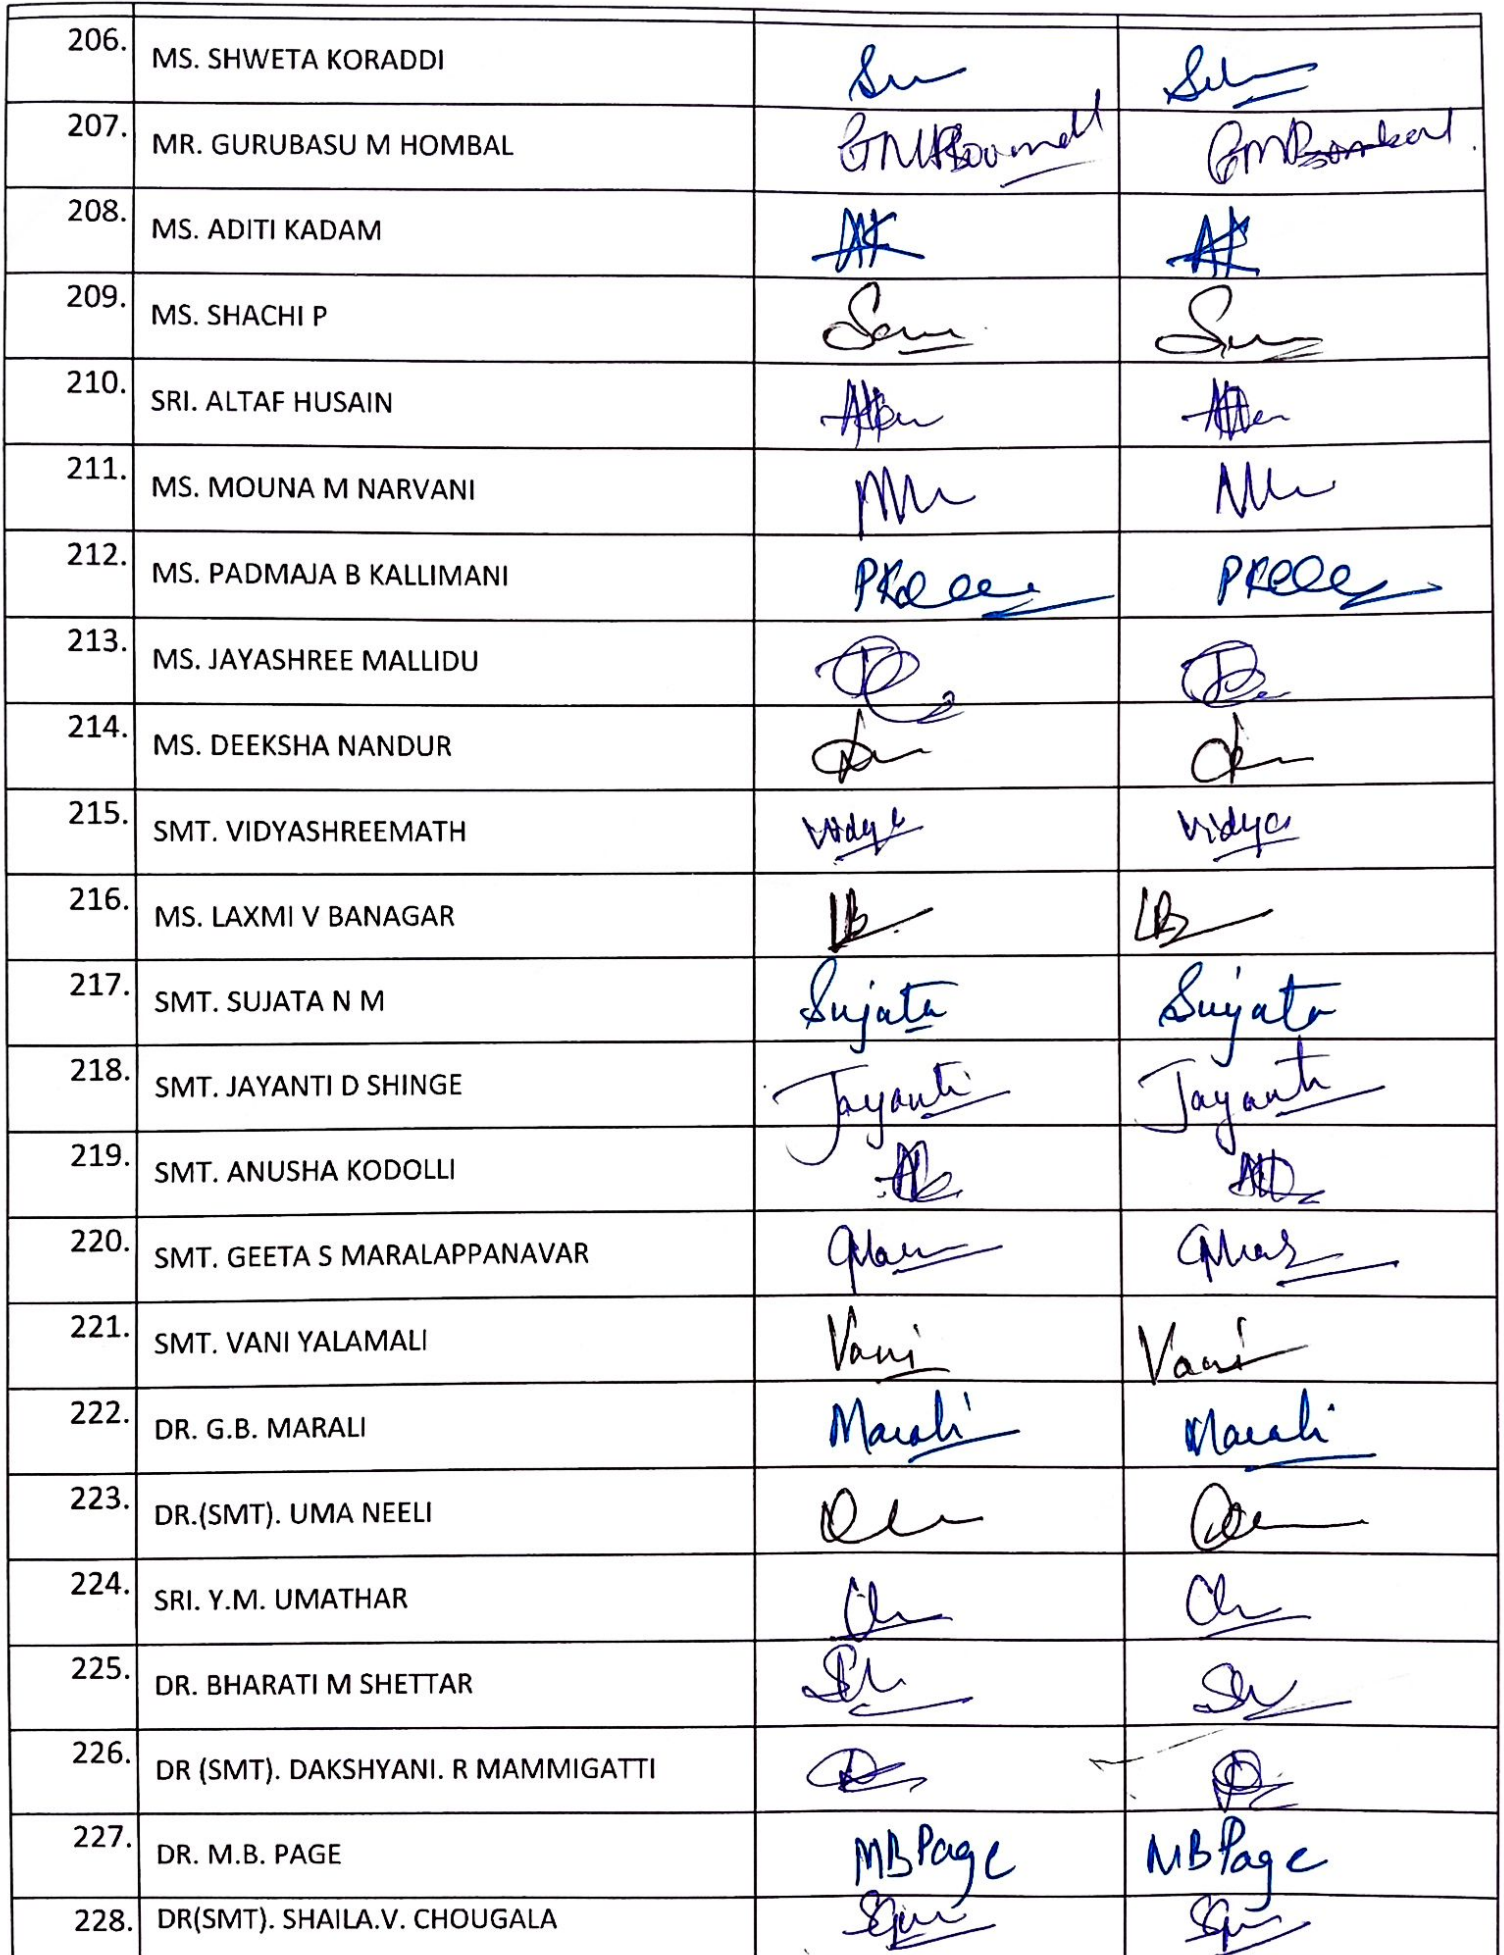 206. MS. SHWETA KORADDI
207. MR. GURUBASU M HOMBAL
208. MS. ADITI KADAM AK AK
209. MS. SHACHI P
210. SRI. ALTAF HUSAIN
211. MS. MOUNA M NARVANI
212. MS. PADMAJA B KALLIMANI
213. MS. JAYASHREE MALLIDU
214. MS. DEEKSHA NANDUR
215. SMT. VIDYASHREEMATH Vidya Vidya
216. MS. LAXMI V BANAGAR LB LB
217. SMT. SUJATA N M Sujata Sujata
218. SMT. JAYANTI D SHINGE Jayanti Jayanti
219. SMT. ANUSHA KODOLLI
220. SMT. GEETA S MARALAPPANAVAR
221. SMT. VANI YALAMALI Vani Vani
222. DR. G.B. MARALI Marali Marali
223. DR.(SMT). UMA NEELI
224. SRI. Y.M. UMATHAR
225. DR. BHARATI M SHETTAR
226. DR (SMT). DAKSHYANI. R MAMMIGATTI
227. DR. M.B. PAGE MBPage MBPage
228. DR(SMT). SHAILA.V. CHOUGALA